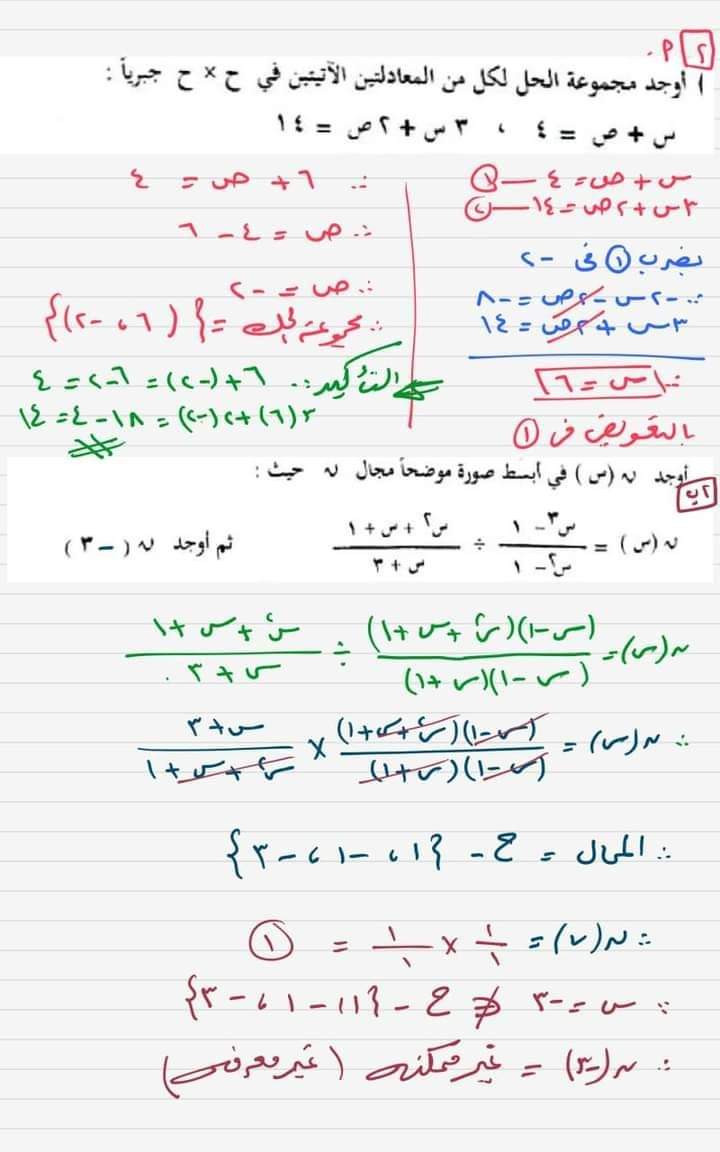 ٢ P.
١ أوجد مجموعة الحل لكل من المعادلتين الآتيتين في ح × ح جبرياً :
س + ص = ٤ ، ٣ س + ٢ ص = ١٤
س + ص = ٤ — ①
٣س + ٢ص = ١٤ — ②
بضرب ① فى -٢
∴ -٢س - ٢ص = -٨
٣س + ٢ص = ١٤
∴ س = ٦
بالتعويض فى ①
∴ ٦ + ص = ٤
∴ ص = ٤ - ٦
∴ ص = -٢
∴ مجموعة الحل = {(٦، -٢)}
التأكيد: ∴ ٦ + (-٢) = ٦-٢ = ٤
٣(٦) + ٢(-٢) = ١٨ - ٤ = ١٤
٢ب
أوجد ن (س) في أبسط صورة موضحاً مجال ن حيث :
ن (س) = (س٣ - ١)/(س٢ - ١) ÷ (س٢ + س + ١)/(س + ٣) ثم أوجد ن (- ٣)
ن(س) = (س-١)(س٢+س+١)/(س-١)(س+١) ÷ (س٢+س+١)/(س+٣)
∴ ن(س) = (س-١)(س٢+س+١)/(س-١)(س+١) × (س+٣)/(س٢+س+١)
∴ المجال = ح - {١، -١، -٣}
∴ ن(٧) = ١/١ × ١/١ = ①
∵ س = -٣ ∉ ح - {١، -١، -٣}
∴ ن(-٣) = غير ممكنه (غير معرفه)